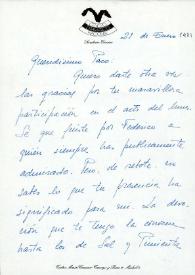 21 de Enero 1981
Queridísimo Paco:
Quiero darte otra vez
las gracias por tu maravillosa
participación en el acto del lunes.
Sé que fuiste por Federico a
quién siempre has publicamente
admirado. Pero, de rebote, no
sabes lo que tu presencia ha
significado para mí. La devo-
ción que te tengo la conocen
hasta los de Sol y